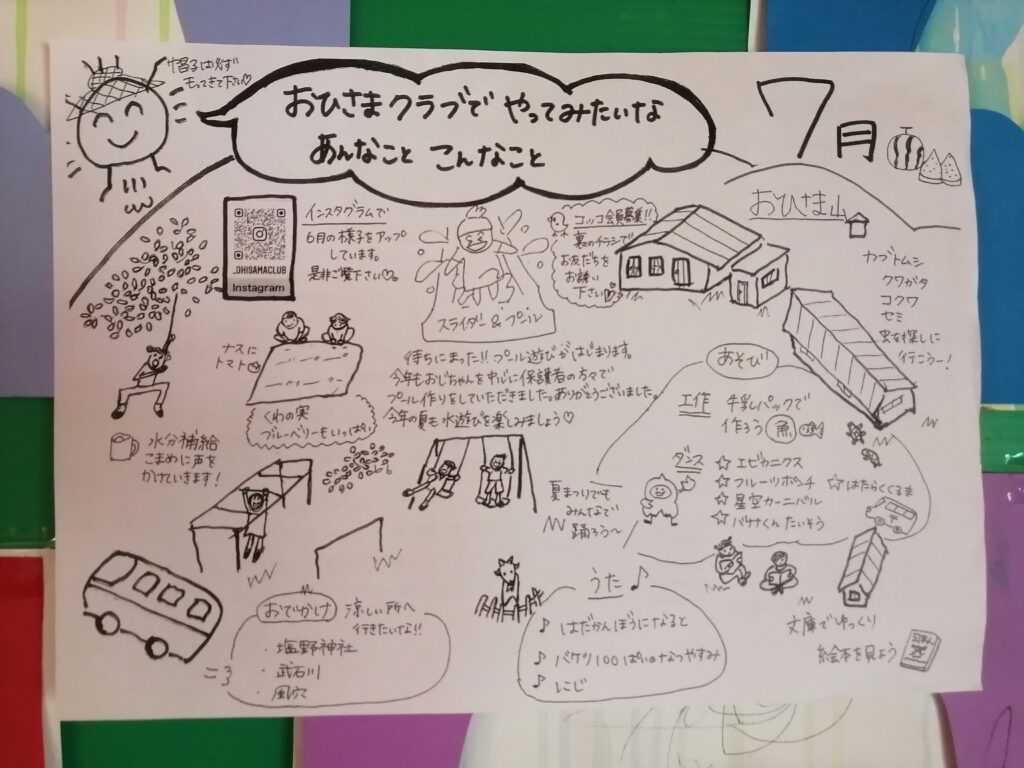 帽子は必ず
もってきて下さい♡
おひさまクラブで やってみたいな
あんなこと こんなこと
7月
_OHISAMACLUB
Instagram
インスタグラムで
6月の様子をアップ
しています。
是非ご覧下さい♡。
スライダー&プール
コッコ会員募集!!
裏のチラシで
お友だちを
お誘い
下さい
おひさま山
カブトムシ
クワガタ
コクワ
セミ
虫を探しに
行こうー!
ナスに
トマト
くわの実
ブルーベリーもいっぱい
待ちにまった!! プール遊びがはじまります。
今年もおじちゃんを中心に保護者の方々で
プール作りをしていただきました。ありがとうございました。
今年の夏も水遊びを楽しみましょう♡
水分補給
こまめに声を
かけていきます!
あそび
工作 牛乳パックで
作ろう 魚
ダンス
☆ エビカニクス
☆ フルーツポンチ
☆ はたらくくるま
☆ 星空カーニバル
☆ バナナくんたいそう
夏まつりでも
みんなで
踊ろう〜
おでかけ
涼しい所へ
行きたいな!!
・塩野神社
・武石川
・風穴
うた♪
♪ はだかんぼうになると
♪ バケツ100ぱいのなつやすみ
♪ にじ
文庫でゆっくり
絵本を見よう
えほん